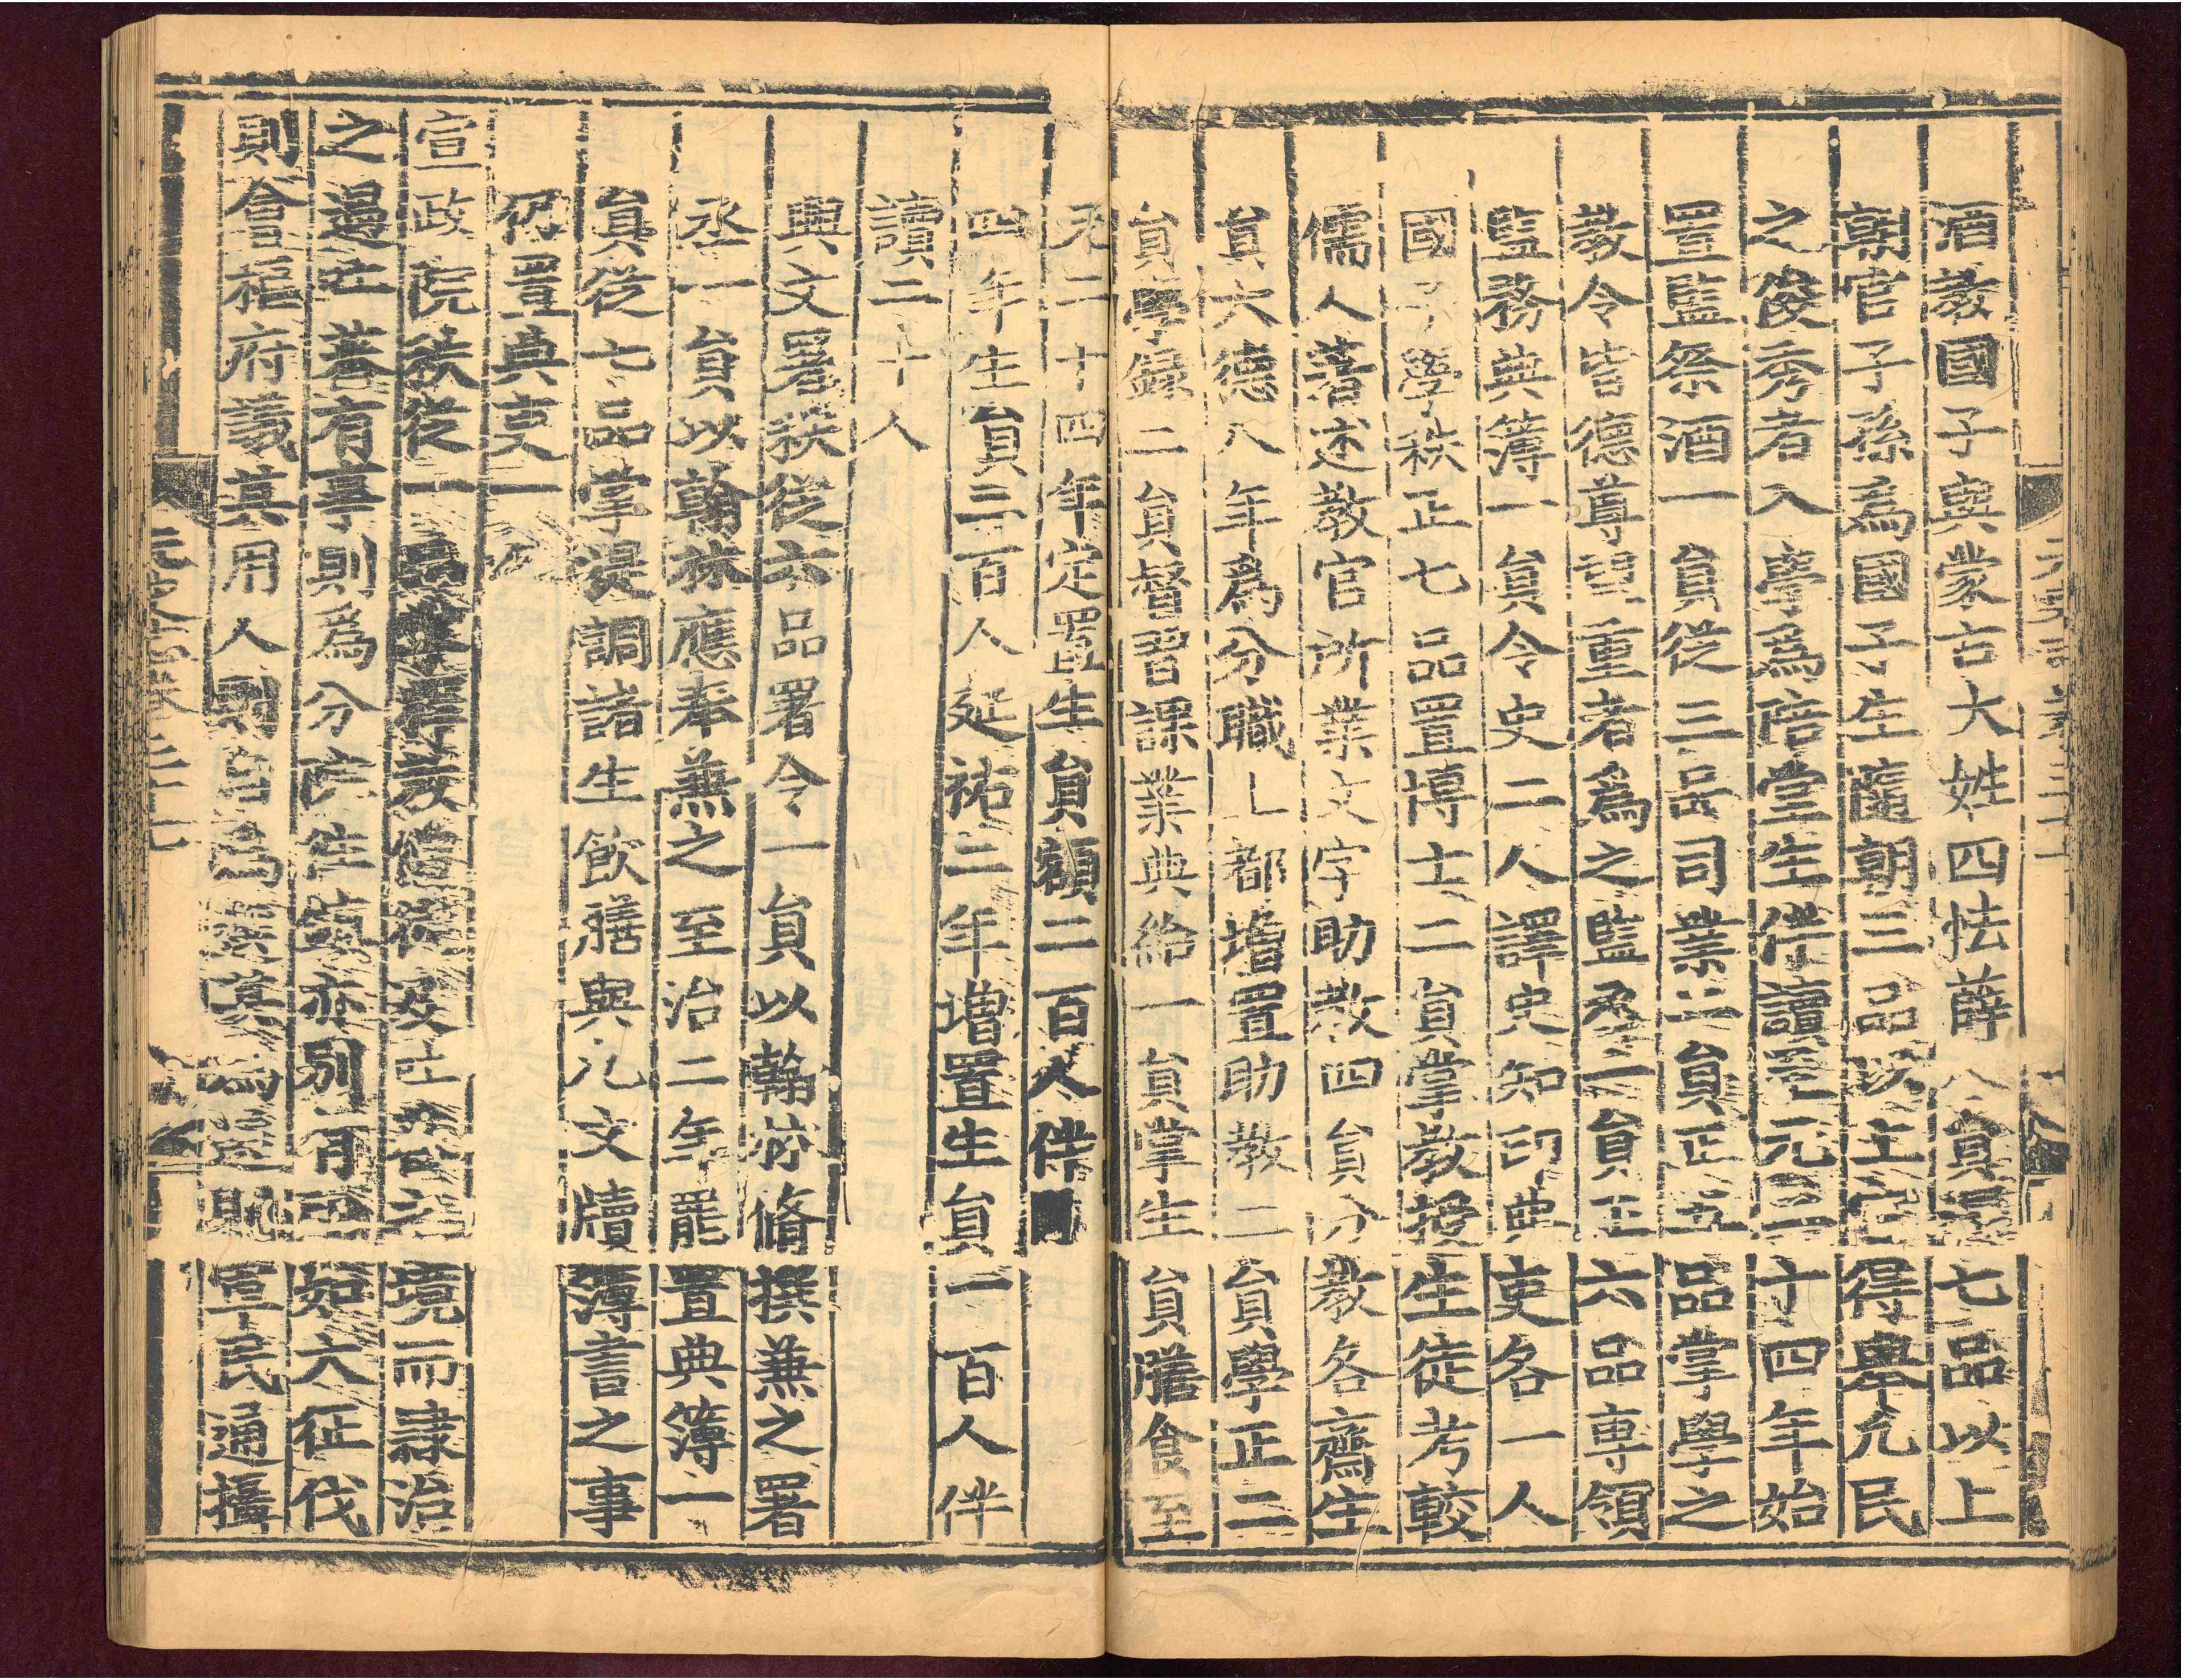 酒教國子與蒙古大姓四怯薛人員選七品以上
朝官子孫為國子生隨朝三品以上官得舉凡民
之俊秀者入學為陪堂生伴讀至元二十四年始
置監祭酒一員從三品司業二員正五品掌學之
教令皆德尊望重者為之監丞一員正六品専領
監務典簿一員令史二人譯史知印典吏各一人
國子學秩正七品置博士二員掌教授生徒考較
儒人著述教官所業文字助教四員分教各齋生
員六德八年為分職上都增置助教二員學正二
員學錄二員督習課業典給一員掌生員膳食至
元二十四年定置生員額二百人伴
四年生員三百人延祐二年增置生員一百人伴
讀二十人
興文署秩從六品署令一員以翰林脩撰兼之署
丞一員以翰林應奉兼之至治二年罷置典簿一
員從七品掌提調諸生飲膳與凡文牘簿書之事
仍置典吏一
宣政院秩從一境而隸治
之遇吐蕃有事則為分院往鎮亦別有印如大征伐
則會樞府議其用人則自為選其為選則軍民通攝